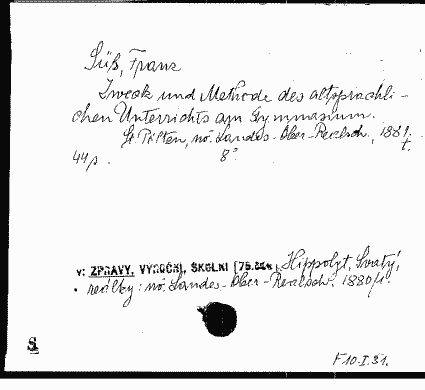 Süß, Franz
Zweck und Methode des altsprachli-
chen Unterrichts am Gymnasium.
St. Pölten, nö. Landes-Ober-Realsch., 1881.
44 s. 8°
v: ZPRÁVY, VÝROČNÍ, ŠKOLNÍ Hippolyt, Svatý,
reálky: nö. Landes-Ober-Realsch. 1880/1.
S
F 10-I-31.